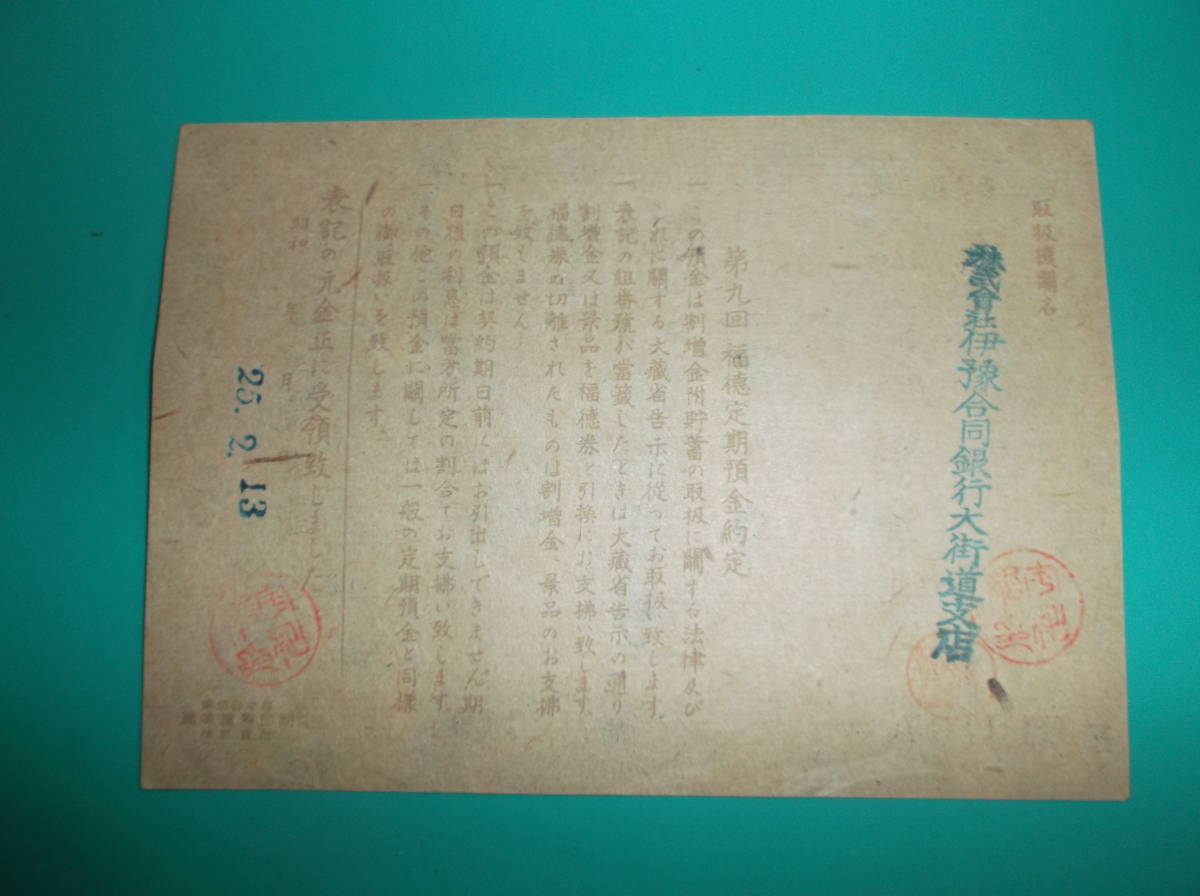 取扱機關名
株式會社伊豫合同銀行大街道支店
第九回 福德定期預金約定
一、この預金は割増金附貯蓄の取扱に關する法律及び
これに關する大藏省告示に從ってお取扱い致します。
一、表記の組番號が當籤したときは大藏省告示の通り
割増金又は景品を福德券と引換にお支拂い致します。
福德券の切離されたものは割増金、景品のお支拂
を致しません
一、この預金は契約期日前にはお引出しできません。期
日後の利息は當方所定の割合でお支拂い致します。
一、その他この預金に關しては一般の定期預金と同様
の御取扱いを致します。
表記の元金正に受領致しました
昭和 年 月 日
25. 2. 13